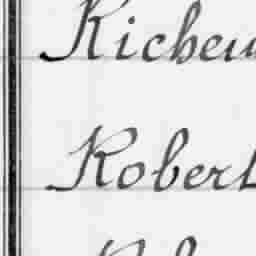 Richeu
Robert